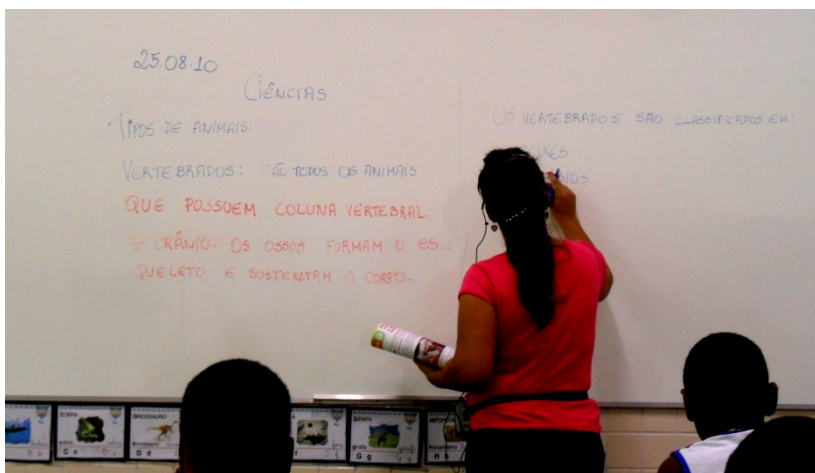 25.08.10
CIÊNCIAS
TIPOS DE ANIMAIS:
VERTEBRADOS: SÃO TODOS OS ANIMAIS
QUE POSSUEM COLUNA VERTEBRAL
E CRÂNIO. OS OSSOS FORMAM O ES_
QUELETO E SUSTENTAM O CORPO.
OS VERTEBRADOS SÃO CLASSIFICADOS EM:
COBRA
C c
DINOSSAURO
dinossauro
D d
GIRAFA
girafa
G g
H h